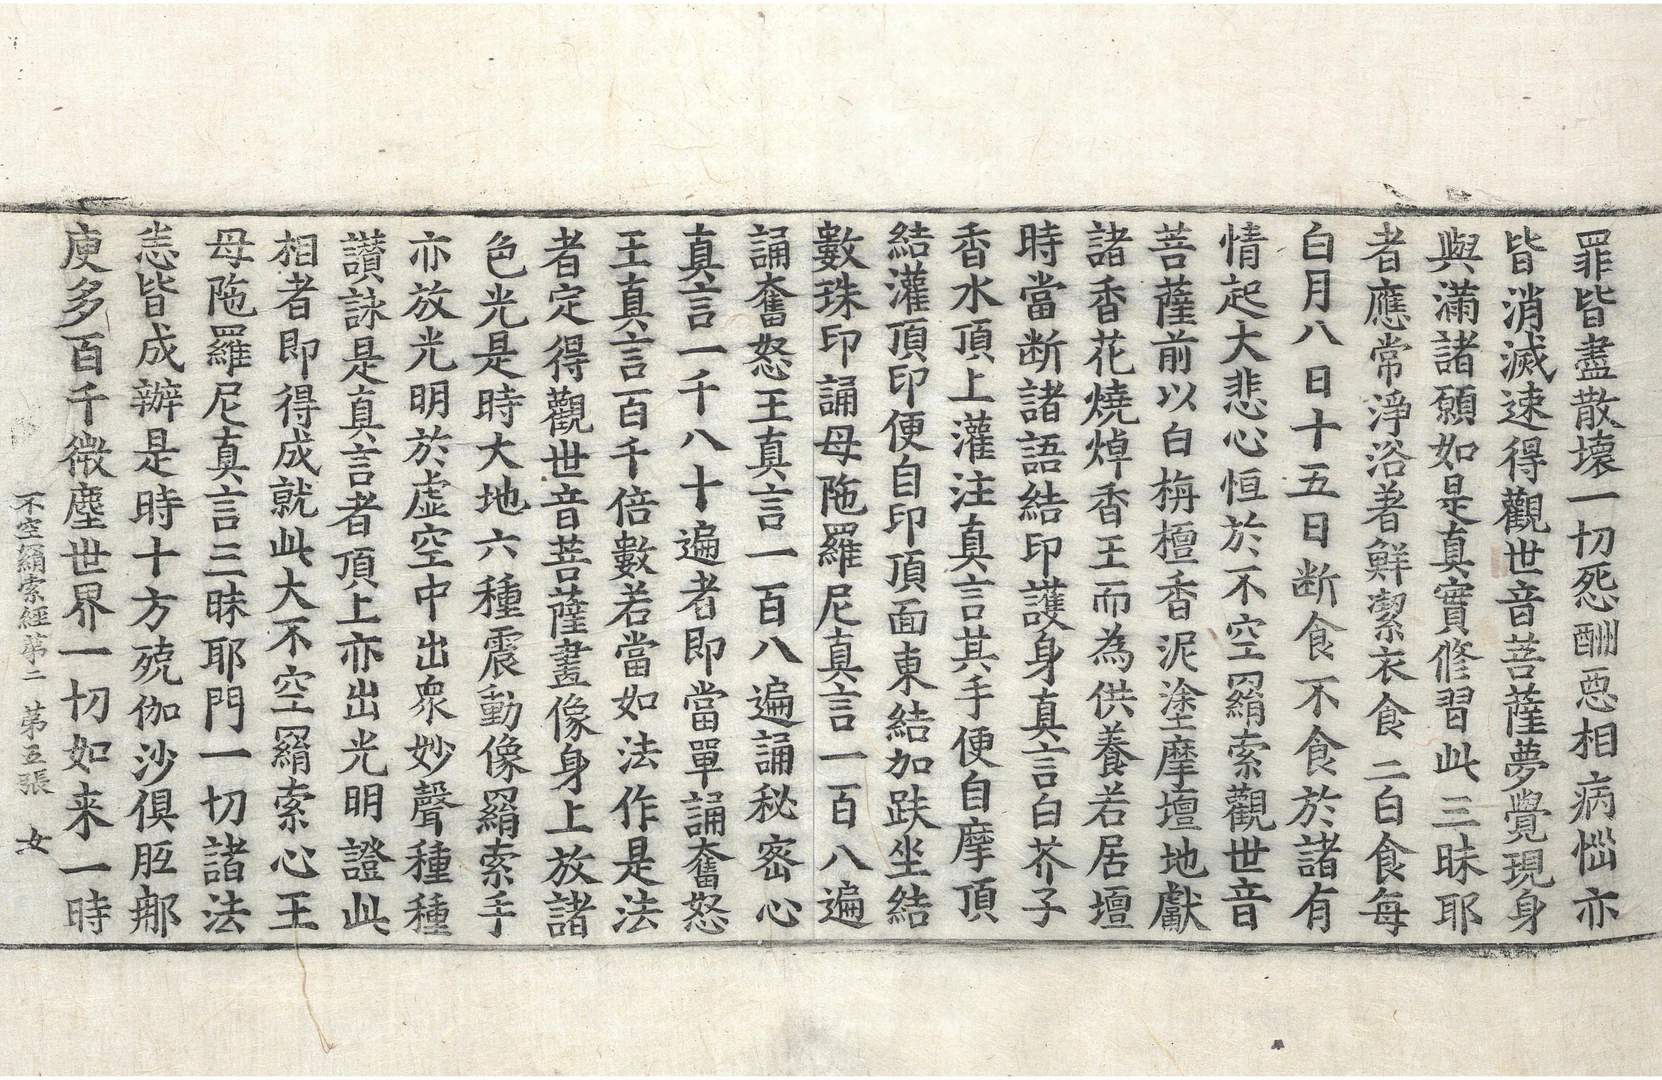 罪皆盡散壞一切惌酬惡相病惱亦
皆消滅速得觀世音菩薩夢覺現身
與滿諸願如是真實修習此三昧耶
者應常淨浴著鮮潔衣食二白食每
白月八日十五日断食不食於諸有
情起大悲心恒於不空羂索觀世音
菩薩前以白栴檀香泥塗摩壇地獻
諸香花燒焯香王而為供養若居壇
時當断諸語結印護身真言白芥子
香水頂上灌注真言其手便自摩頂
結灌頂印便自印頂面東結加趺坐結
數珠印誦母陁羅尼真言一百八遍
誦奮怒王真言一百八遍誦秘密心
真言一千八十遍者即當單誦奮怒
王真言一百千倍數若當如法作是法
者定得觀世音菩薩畫像身上放諸
色光是時大地六種震動像羂索手
亦放光明於虛空中出衆妙聲種種
讃詠是真言者頂上亦出光明證此
相者即得成就此大不空羂索心王
母陁羅尼真言三昧耶門一切諸法
悉皆成辦是時十方殑伽沙俱胝那
庾多百千微塵世界一切如来一時
不空羂索經第二 第五張 女